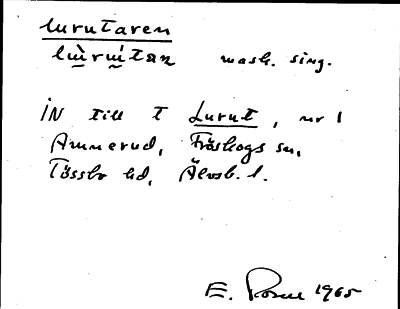 lurutaren
lùrútan mask. sing.
IN till t Lurut, nr 1
Ammerud, Fröskogs sn,
Tössbo hd, Älvsb. l.
E. 1965